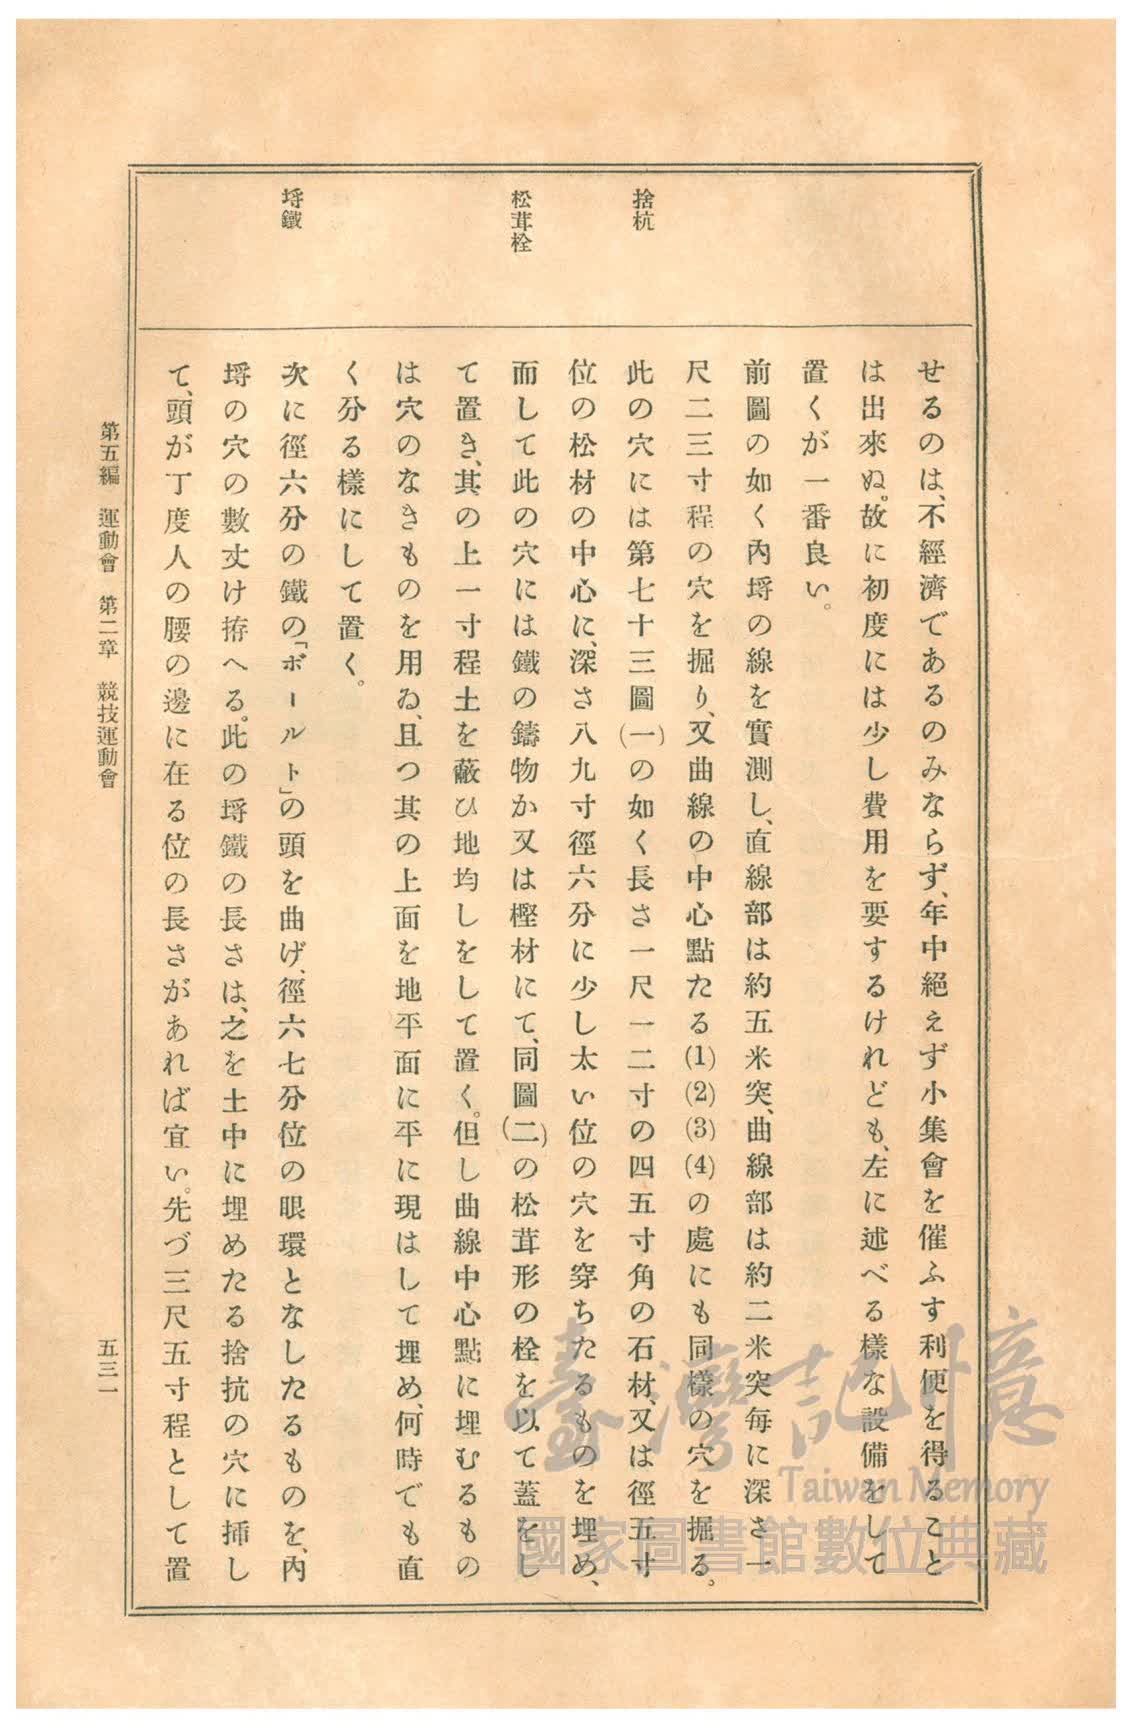 捨杭
松茸栓
埒鐵
せるのは、不經濟であるのみならず、年中絕えず小集會を催ふす利便を得ること
は出來ぬ。故に初度には少し費用を要するけれども、左に述べる樣な設備をして
置くが一番良い。
前圖の如く內埒の線を實測し、直線部は約五米突、曲線部は約二米突每に深さ一
尺二三寸程の穴を掘り、又曲線の中心點たる(1)(2)(3)(4)の處にも同樣の穴を掘る。
此の穴には第七十三圖(一)の如く長さ一尺一二寸の四五寸角の石材、又は徑五寸
位の松材の中心に、深さ八九寸徑六分に少し太い位の穴を穿ちたるものを埋め、
而して此の穴には鐵の鑄物か又は樫材にて、同圖(二)の松茸形の栓を以て蓋をし
て置き、其の上一寸程土を蔽ひ地均しをして置く。但し曲線中心點に埋むるもの
は穴のなきものを用ゐ、且つ其の上面を地平面に平に現はして埋め、何時でも直
く分る樣にして置く。
次に徑六分の鐵の「ボールト」の頭を曲げ、徑六七分位の眼環となしたるものを、內
埒の穴の數丈け拵へる。此の埒鐵の長さは、之を土中に埋めたる捨抗の穴に揷し
て、頭が丁度人の腰の邊に在る位の長さがあれば宜い。先づ三尺五寸程として置
第五編 運動會 第二章 競技運動會
五三一
臺灣記憶
Taiwan Memory
國家圖書館數位典藏